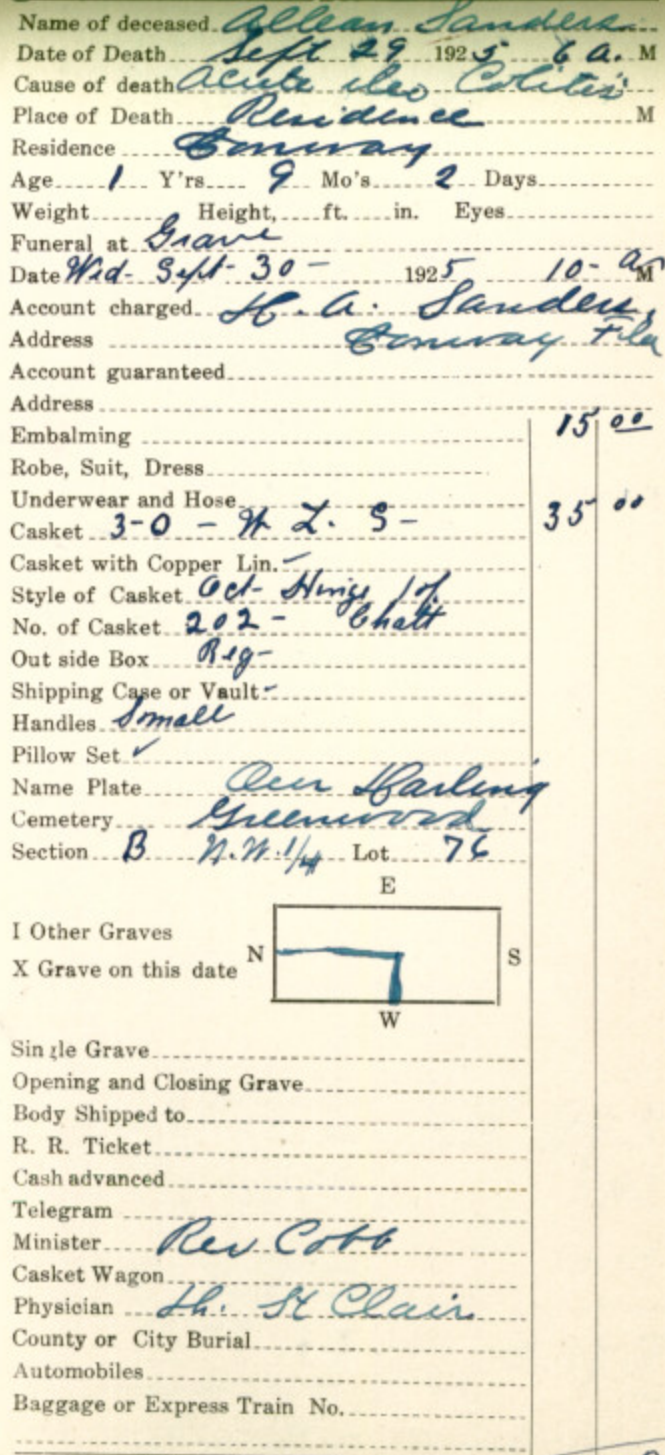 Name of deceased Allean Sanders
Date of Death Sept 29 1925 6 a. M
Cause of death acute ileo Colitis
Place of Death Residence M
Residence Conway
Age 1 Y'rs 9 Mo's 2 Days
Weight Height, ft. in. Eyes
Funeral at Grave
Date Wed- Sept- 30- 1925 10- a M
Account charged H. A. Sanders,
Address Conway Fla
Account guaranteed
Address
Embalming 15 00
Robe, Suit, Dress
Underwear and Hose
Casket 3-0 - W L. S- 35 00
Casket with Copper Lin. -
Style of Casket Oct- Hinge
No. of Casket 202- Chatt
Out side Box Reg-
Shipping Case or Vault -
Handles Small
Pillow Set ✓
Name Plate Our Darling
Cemetery Greenwood
Section B N.W. 1/4 Lot 76
E
I Other Graves
N S
X Grave on this date
W
Single Grave
Opening and Closing Grave
Body Shipped to
R. R. Ticket
Cash advanced
Telegram
Minister Rev Cobb
Casket Wagon
Physician St Clair
County or City Burial
Automobiles
Baggage or Express Train No.